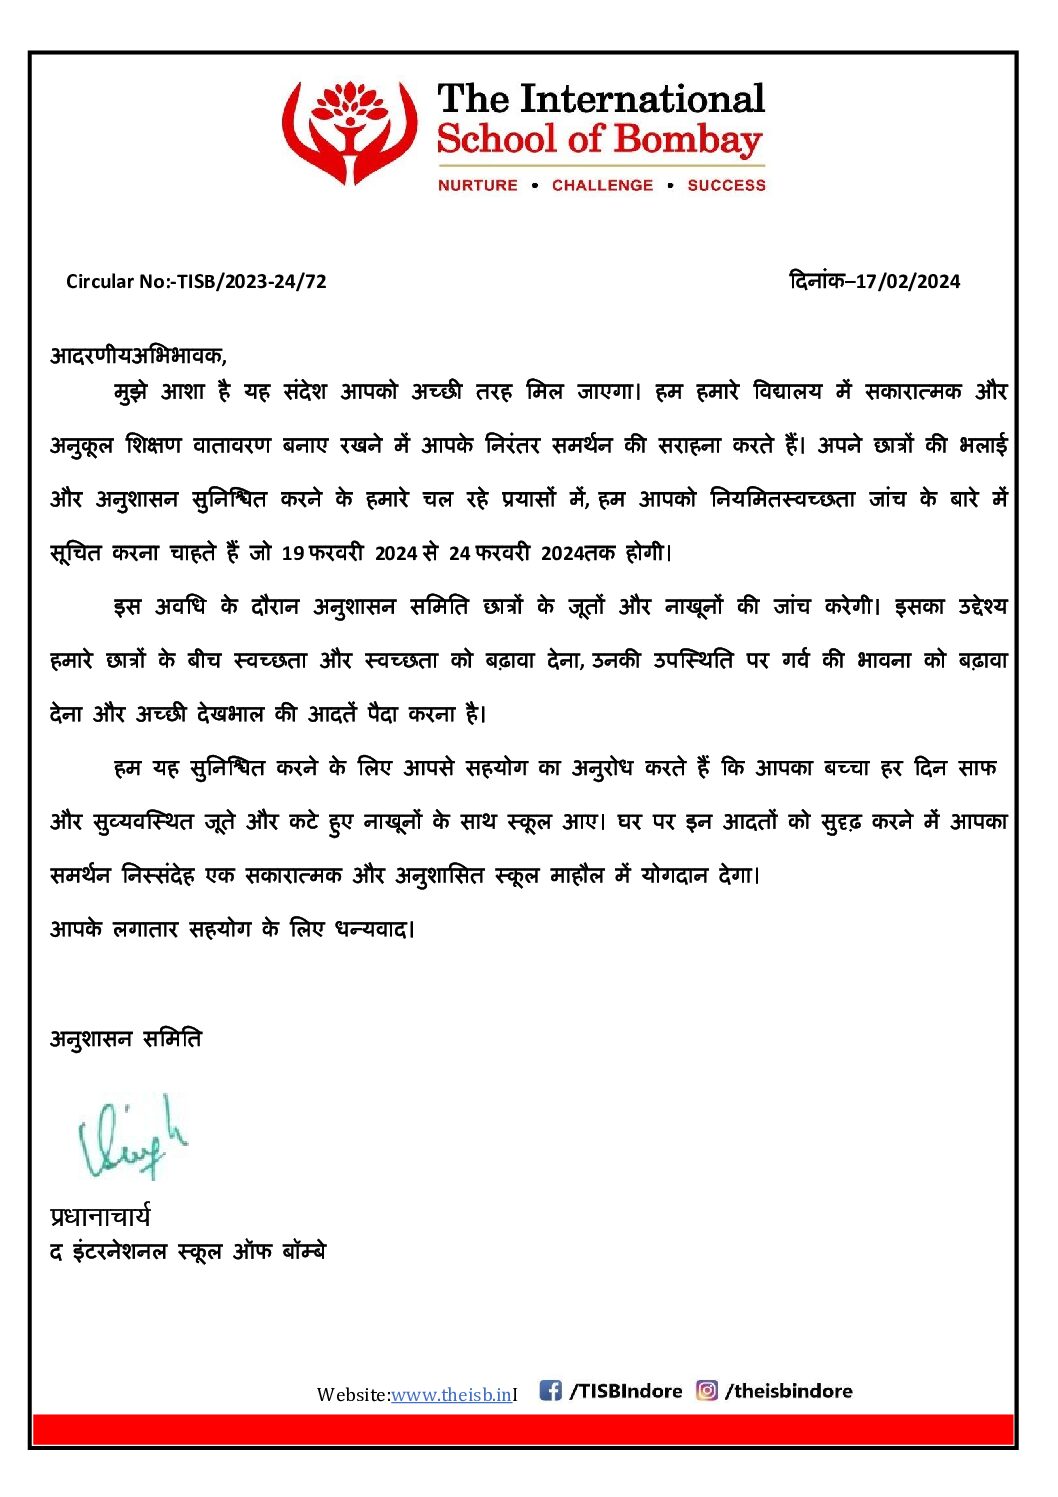 The International
School of Bombay
NURTURE • CHALLENGE • SUCCESS
Circular No:-TISB/2023-24/72 दिनांक–17/02/2024
आदरणीयअभिभावक,
मुझे आशा है यह संदेश आपको अच्छी तरह मिल जाएगा। हम हमारे विद्यालय में सकारात्मक और
अनुकूल शिक्षण वातावरण बनाए रखने में आपके निरंतर समर्थन की सराहना करते हैं। अपने छात्रों की भलाई
और अनुशासन सुनिश्चित करने के हमारे चल रहे प्रयासों में, हम आपको नियमितस्वच्छता जांच के बारे में
सूचित करना चाहते हैं जो 19 फरवरी 2024 से 24 फरवरी 2024तक होगी।
इस अवधि के दौरान अनुशासन समिति छात्रों के जूतों और नाखूनों की जांच करेगी। इसका उद्देश्य
हमारे छात्रों के बीच स्वच्छता और स्वच्छता को बढ़ावा देना, उनकी उपस्थिति पर गर्व की भावना को बढ़ावा
देना और अच्छी देखभाल की आदतें पैदा करना है।
हम यह सुनिश्चित करने के लिए आपसे सहयोग का अनुरोध करते हैं कि आपका बच्चा हर दिन साफ
और सुव्यवस्थित जूते और कटे हुए नाखूनों के साथ स्कूल आए। घर पर इन आदतों को सुदृढ़ करने में आपका
समर्थन निस्संदेह एक सकारात्मक और अनुशासित स्कूल माहौल में योगदान देगा।
आपके लगातार सहयोग के लिए धन्यवाद।
अनुशासन समिति
प्रधानाचार्य
द इंटरनेशनल स्कूल ऑफ बॉम्बे
Website:www.theisb.inI /TISBIndore /theisbindore